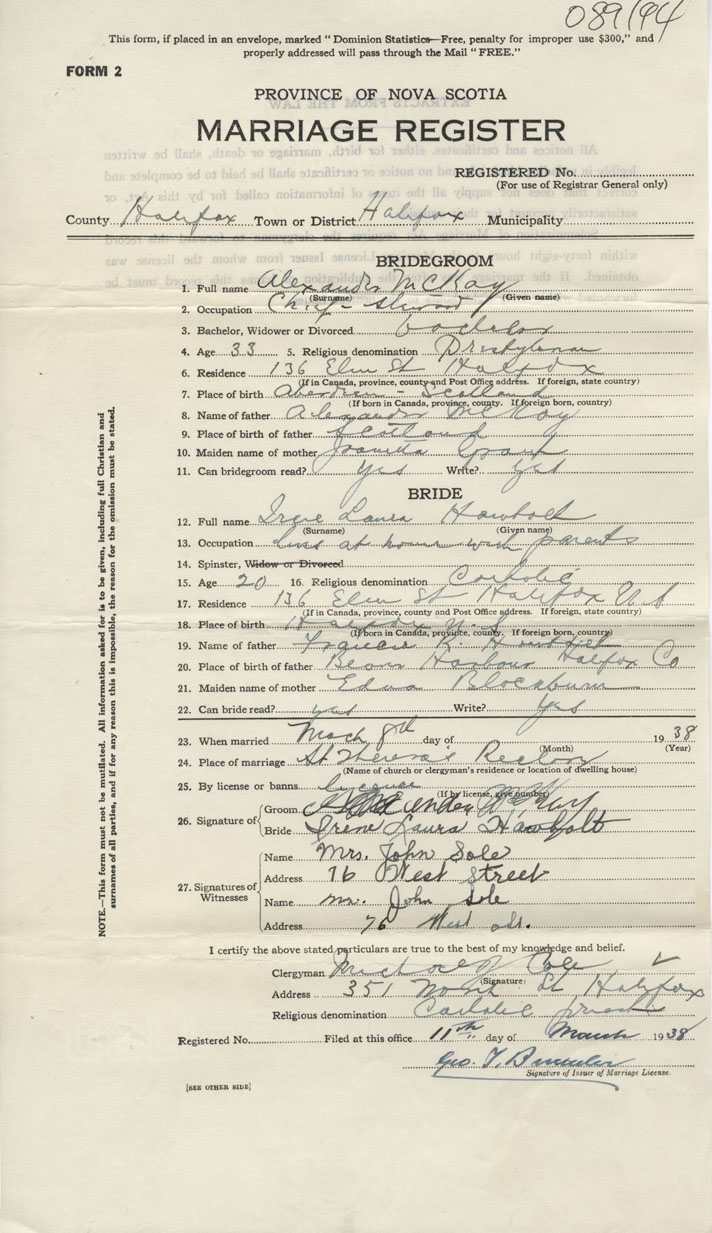 089194
This form, if placed in an envelope, marked "Dominion Statistics—Free, penalty for improper use $300," and
properly addressed will pass through the Mail "FREE."
FORM 2
PROVINCE OF NOVA SCOTIA
MARRIAGE REGISTER
REGISTERED No.
(For use of Registrar General only)
County Halifax Town or District Halifax Municipality
BRIDEGROOM
1. Full name Alexander McKay
(Surname) (Given name)
2. Occupation Chief
3. Bachelor, Widower or Divorced bachelor
4. Age 33 5. Religious denomination Presbyterian
6. Residence 136 Elm St Halifax
(If in Canada, province, county and Post Office address. If foreign, state country)
7. Place of birth Aberdien - Scotland
(If born in Canada, province, county. If foreign born, country)
8. Name of father Alexander McKay
9. Place of birth of father Scotland
10. Maiden name of mother Grant
11. Can bridegroom read? Yes Write? Yes
BRIDE
12. Full name Irene Laura Hawbolt
(Surname) (Given name)
13. Occupation lives at home with parents
14. Spinster, Widow or Divorced
15. Age 20 16. Religious denomination Catholic
17. Residence 136 Elm St Halifax N.S
(If in Canada, province, county and Post Office address. If foreign, state country)
18. Place of birth Halifax N.S
(If born in Canada, province, county. If foreign born, country)
19. Name of father Francis
20. Place of birth of father Harbour Halifax Co
21. Maiden name of mother Edna Blackburn
22. Can bride read? yes Write? Yes
23. When married Mach 8th day of 1938
(Month) (Year)
24. Place of marriage St Theresa's Rectory
(Name of church or clergyman's residence or location of dwelling house)
25. By license or banns
(If by license, give number)
26. Signature of Groom Alexander McKay
Bride Irene Laura Hawbolt
27. Signatures of Witnesses
Name Mrs. John Sole
Address 76 West Street
Name Mr. John Sole
Address 76 West St.
I certify the above stated particulars are true to the best of my knowledge and belief.
Clergyman Michael J Cole
(Signature)
Address 351 North St Halifax
Religious denomination Catholic priest
Registered No. Filed at this office 11th day of March 1938
Geo. T.
Signature of Issuer of Marriage License
[SEE OTHER SIDE]
NOTE.—This form must not be mutilated. All information asked for is to be given, including full Christian and
surnames of all parties, and if for any reason this is impossible, the reason for the omission must be stated.